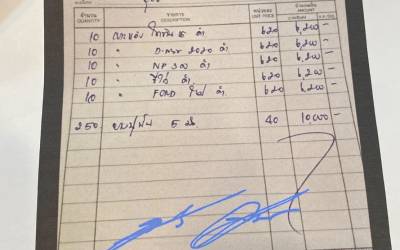 จำนวน QUANTITY รายการ DESCRIPTION หน่วยละ UNIT PRICE จำนวนเงิน AMOUNT
10 ดำ 620 6,200 –
10 " D-max 2020 ดำ 620 6,200 –
10 " NP 300 ดำ 620 6,200 –
10 " รีโว่ ดำ 620 6,200 –
10 " FORD ใหม่ ดำ 620 6,200 –
250 5 40 10,000 –